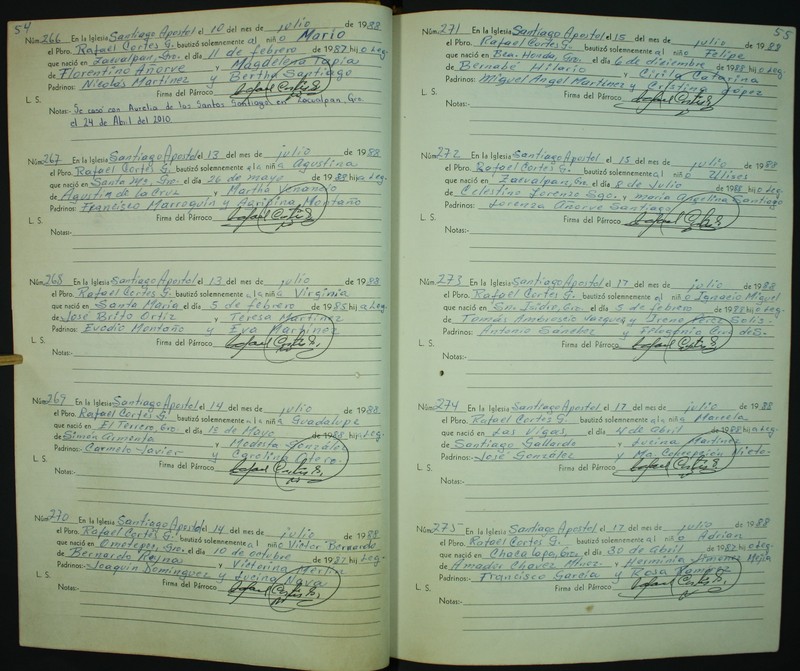 54
Núm. 266 En la Iglesia Santiago Apostol el 10 del mes de julio de 1988
el Pbro. Rafael Cortes G. bautizó solemnemente al niño Mario
que nació en Zacualpan, Gro. el día 11 de febrero de 1987 hijo Leg.
de Florentino Añorve y Magdalena Tapia
Padrinos: Nicolás Martínez y Bertha Santiago
Firma del Párroco Rafael Cortés G.
L. S.
Notas: Se casó con Aurelia de los Santos Santiago en Zacualpan, Gro.
el 24 de Abril del 2010.
Núm. 267 En la Iglesia Santiago Apostol el 13 del mes de julio de 1988
el Pbro. Rafael Cortes G. bautizó solemnemente a la niña Agustina
que nació en Santa Ma. Gro. el día 26 de mayo de 1988 hija Leg.
de Agustín de la Cruz y Martha Venancio
Padrinos: Francisco Marroquín y Agripina Montaño
L. S. Firma del Párroco Rafael Cortés G.
Notas:
Núm. 268 En la Iglesia Santiago Apostol el 13 del mes de julio de 1988
el Pbro. Rafael Cortes G. bautizó solemnemente a la niña Virginia
que nació en Santa María el día 5 de febrero de 1985 hija Leg.
de José Brito Ortiz y Teresa Martínez
Padrinos: Evodio Montaño y Eva Martínez
L. S. Firma del Párroco Rafael Cortés G.
Notas:
Núm. 269 En la Iglesia Santiago Apostol el 14 del mes de julio de 1988
el Pbro. Rafael Cortes G. bautizó solemnemente a la niña Guadalupe
que nació en El Terrero, Gro. el día 15 de Mayo de 1988 hija Leg.
de Simón Armenta y Modesta González
Padrinos: Carmelo Javier y Carolina Otero
L. S. Firma del Párroco Rafael Cortés G.
Notas:
Núm. 270 En la Iglesia Santiago Apostol el 14 del mes de julio de 1988
el Pbro. Rafael Cortes G. bautizó solemnemente al niño Victor Bernardo
que nació en Ometepec, Gro. el día 10 de octubre de 1987 hijo Leg.
de Bernardo Reyna y Victorina Merlin
Padrinos: Joaquín Domínguez y Lucina Nava
L. S. Firma del Párroco Rafael Cortés G.
Notas:
55
Núm. 271 En la Iglesia Santiago Apostol el 15 del mes de julio de 1988
el Pbro. Rafael Cortes G. bautizó solemnemente al niño Felipe
que nació en Bca. Honda, Gro. el día 6 de diciembre de 1987 hijo Leg.
de Bernabé Hilario y Cirila Catarina
Padrinos: Miguel Angel Martínez y Cristina López
L. S. Firma del Párroco Rafael Cortés G.
Notas:
Núm. 272 En la Iglesia Santiago Apostol el 15 del mes de julio de 1988
el Pbro. Rafael Cortes G. bautizó solemnemente al niño Ulises
que nació en Zacualpan, Gro. el día 8 de Julio de 1988 hijo Leg.
de Celestino Lorenzo Sgo. y María Angelina Santiago
Padrinos: Lorenza Añorve Santiago
L. S. Firma del Párroco Rafael Cortés G.
Notas:
Núm. 273 En la Iglesia Santiago Apostol el 17 del mes de julio de 1988
el Pbro. Rafael Cortes G. bautizó solemnemente al niño Ignacio Miguel
que nació en Sn. Isidro, Gro. el día 5 de febrero de 1988 hijo Leg.
de Tomás Ambrosio Vazquez y Irene Pérez Solis
Padrinos: Antonio Sánchez y
L. S. Firma del Párroco Rafael Cortés G.
Notas:
Núm. 274 En la Iglesia Santiago Apostol el 17 del mes de julio de 1988
el Pbro. Rafael Cortes G. bautizó solemnemente a la niña Marcela
que nació en Las Vigas el día 4 de Abril de 1988 hija Leg.
de Santiago Gallardo y Lucina Martínez
Padrinos: José González y Ma. Concepción Nieto
L. S. Firma del Párroco Rafael Cortés G.
Notas:
Núm. 275 En la Iglesia Santiago Apostol el 17 del mes de julio de 1988
el Pbro. Rafael Cortes G. bautizó solemnemente al niño Adrian
que nació en Chacalapa, Gro. el día 30 de Abril de 1982 hijo Leg.
de Amador Chávez y Herminia Jiménez Mejía
Padrinos: Francisco García y Rosa Ramírez
L. S. Firma del Párroco Rafael Cortés G.
Notas: